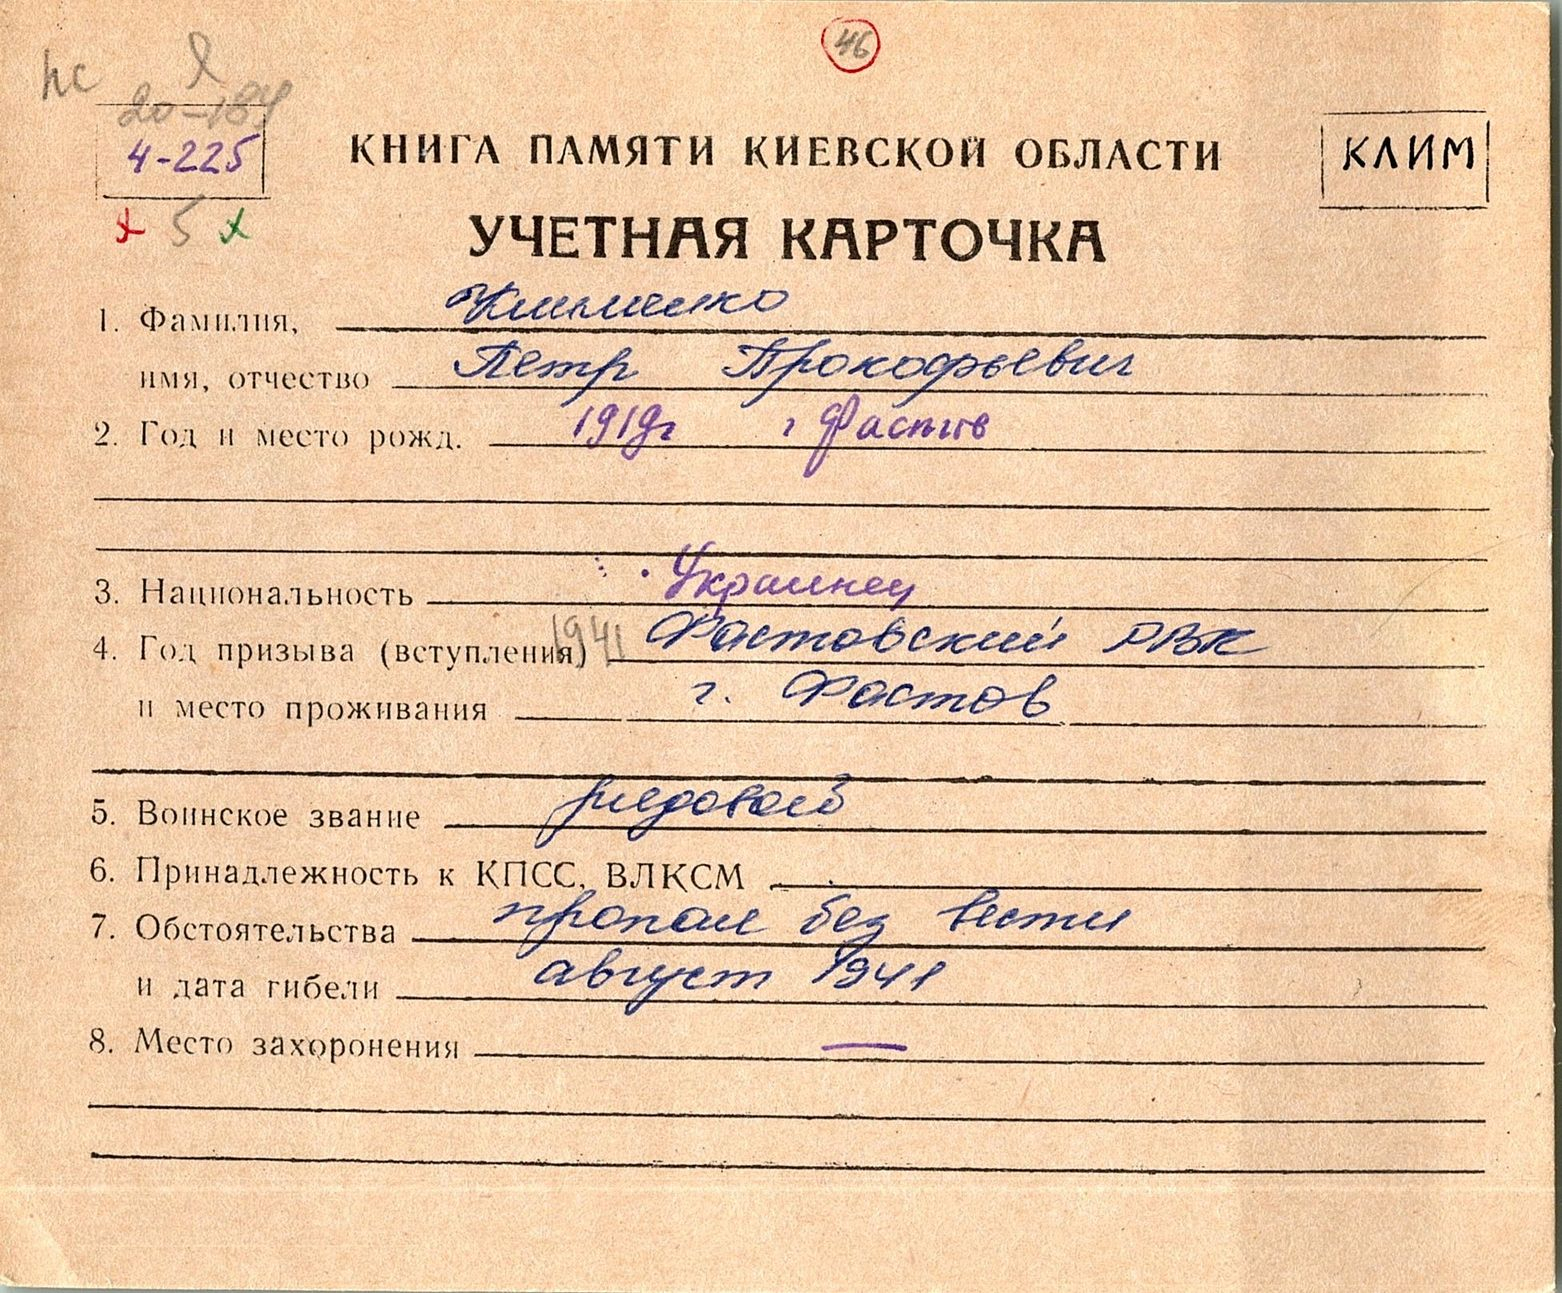 46
нс
20-184
4-225
КНИГА ПАМЯТИ КИЕВСКОЙ ОБЛАСТИ
КЛИМ
5
УЧЕТНАЯ КАРТОЧКА
1. Фамилия, Клименко
имя, отчество Петр Прокофьевич
2. Год и место рожд. 1919г г Фастів
3. Национальность Украинец
4. Год призыва (вступления) 1941 Фастовский РВК
и место проживания г. Фастов
5. Воинское звание рядовой
6. Принадлежность к КПСС, ВЛКСМ
7. Обстоятельства пропал без вести
и дата гибели август 1941
8. Место захоронения —